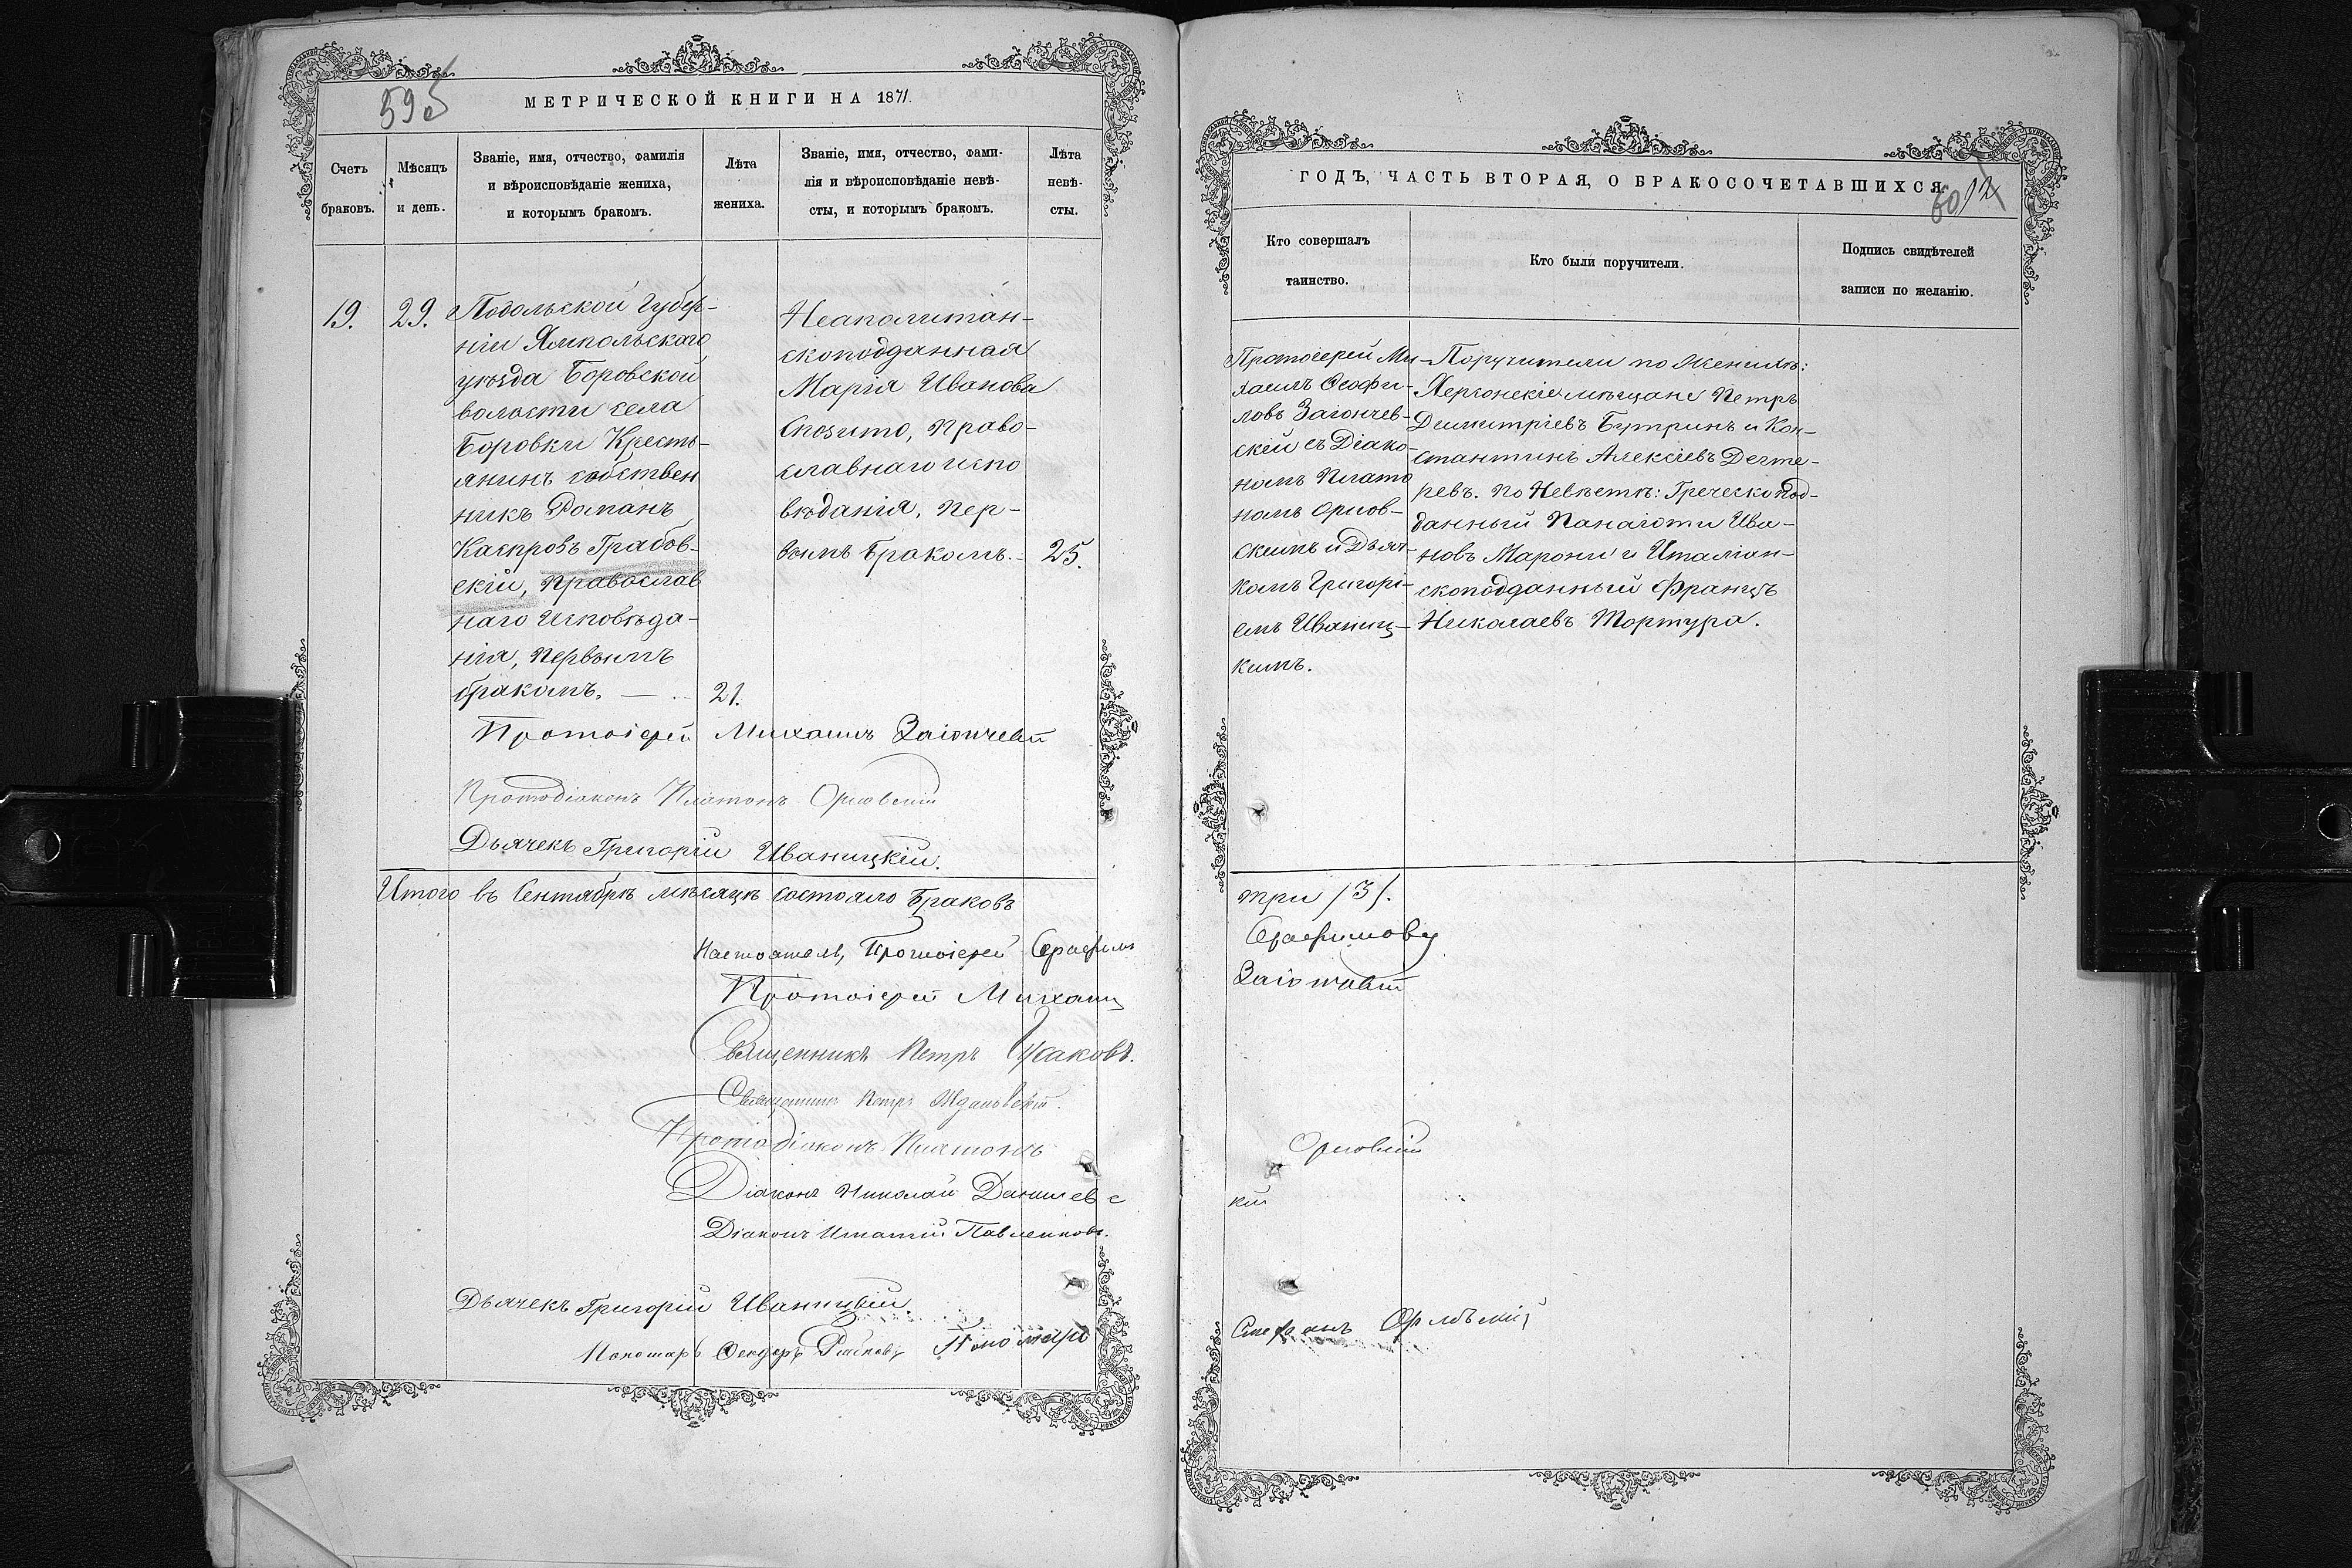 59б
МЕТРИЧЕСКОЙ КНИГИ НА 1871.
Счетъ браковъ.
Мѣсяцъ и день.
Званіе, имя, отчество, фамилія
и вѣроисповѣданіе жениха,
и которымъ бракомъ.
Лѣта жениха.
Званіе, имя, отчество, фами-
лія и вѣроисповѣданіе невѣ-
сты, и которымъ бракомъ.
Лѣта невѣ-
сты.
19.
29.
Подольской Губер-
ніи Ямпольскаго
уѣзда Боровской
волости села
Боровки Кресть-
янинъ собствен
никъ Романъ
Каспровъ Грабов-
скій, православ
наго исповѣда-
нія, первымъ
бракомъ. —
21.
Неаполитан-
скоподданная
Марія Иванова
Спозито, право-
славнаго испо
вѣданія, пер-
вымъ бракомъ.
25.
Протоіерей Михаилъ Заіончевскій
Протодіаконъ Платонъ Орловскій
Дьячекъ Григорій Иваницкій.
Итого въ Сентябрѣ мѣсяцѣ состояло браковъ
Настоятель, Протоіерей Серафимъ
Протоіерей Михаилъ
Священникъ Петръ
Священникъ Петръ Ждановскій.
Протодіаконъ Платонъ
Діаконъ Николай Данилевс
Діаконъ Игнатій Павленковъ.
Дьячекъ Григорій Иваницкій.
Пономарь Феодоръ Пономарь
ГОДЪ, ЧАСТЬ ВТОРАЯ, О БРАКОСОЧЕТАВШИХСЯ.
60
12
Кто совершалъ
таинство.
Кто были поручители.
Подпись свидѣтелей
записи по желанію.
Протоіерей Ми-
хаилъ Ѳеофи-
ловъ Заіончев-
скій съ Діако-
номъ Плато
номъ Орлов-
скимъ и Дьяч-
комъ Григорі-
емъ Иваниц-
кимъ.
Поручители по Женихѣ:
Херсонскіе мѣщане Петръ
Димитріевъ Бутринъ и Кон-
стантинъ Алексѣевъ Дегте-
ревъ. По Невѣстѣ: Греческопод-
данный Панаіоти Ива-
новъ Марони и Италіан-
скоподданный Францъ
Николаевъ Тортура.
три /3/.
Серафимовъ
Заіончевскій
Орловскій
кій
Стефанъ